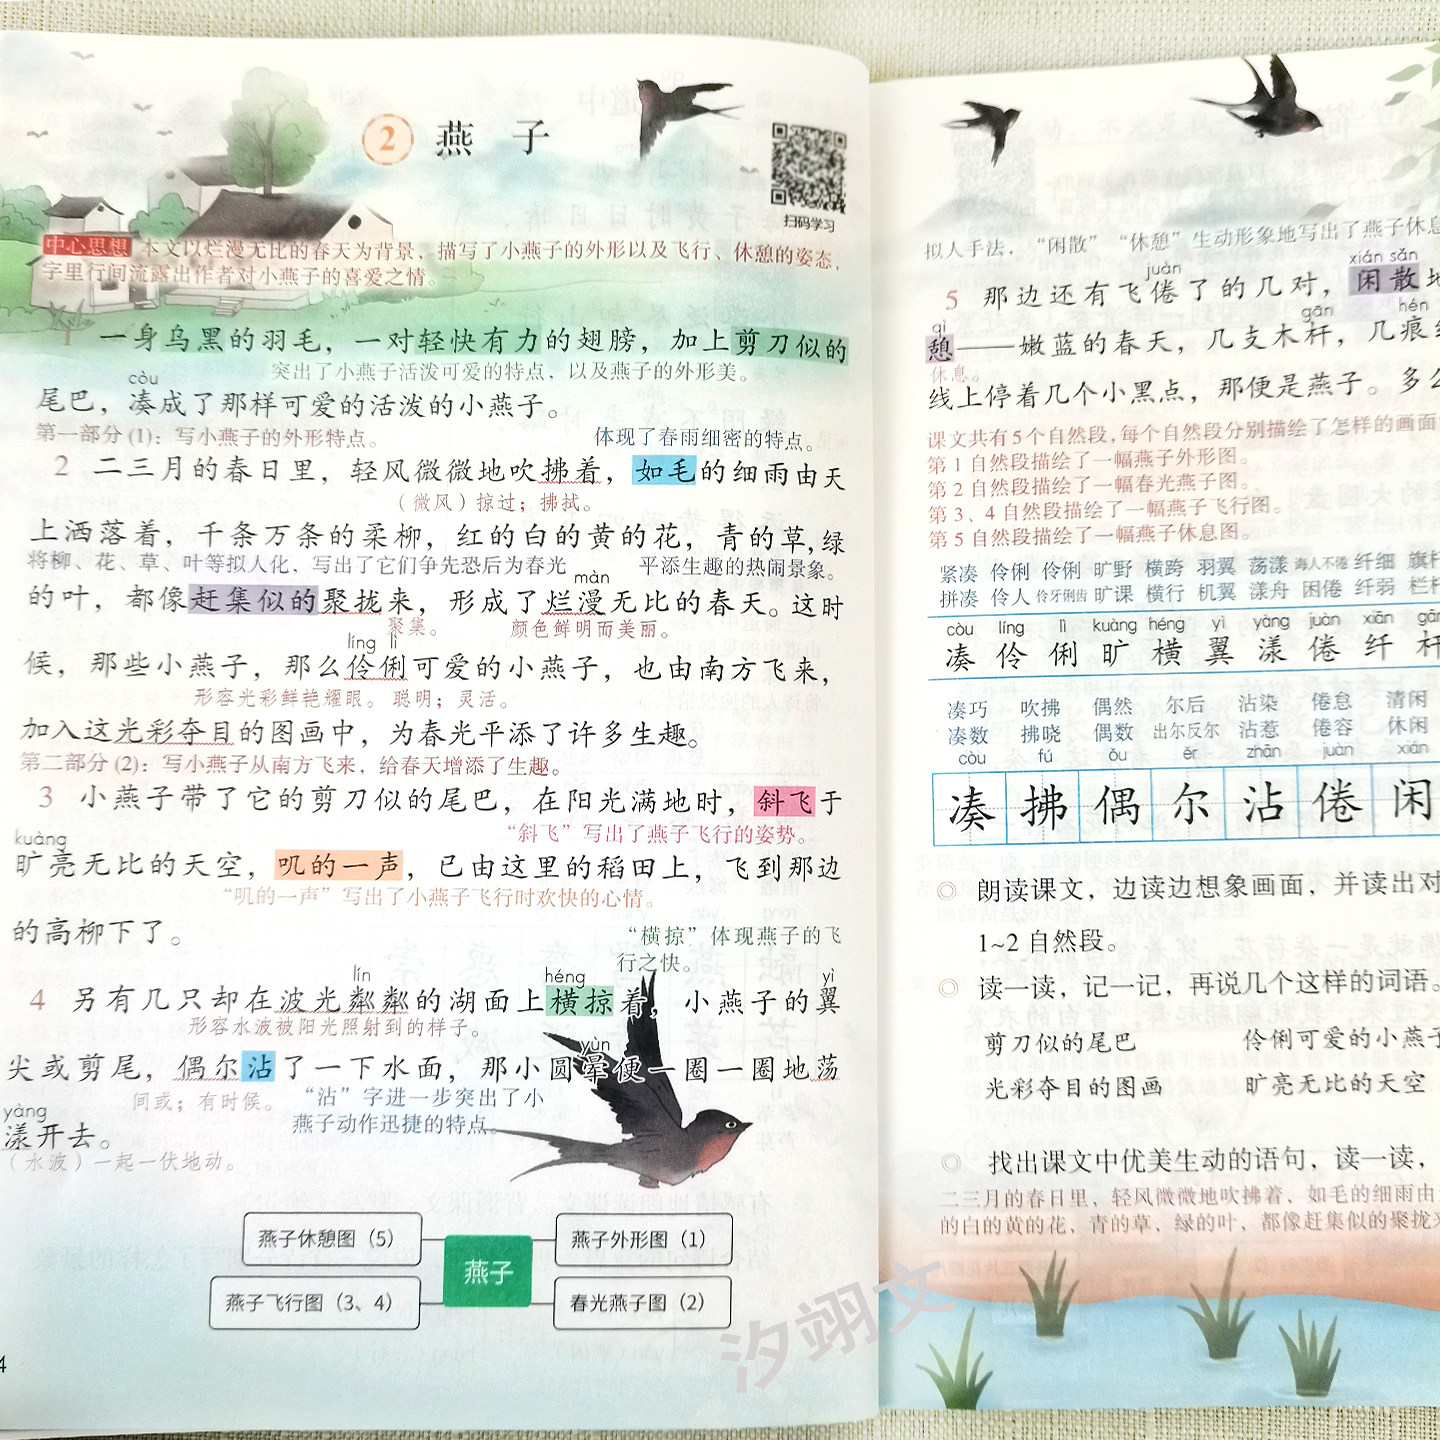 2 燕子
扫码学习
中心思想 本文以烂漫无比的春天为背景，描写了小燕子的外形以及飞行、休憩的姿态，
字里行间流露出作者对小燕子的喜爱之情。
1 一身乌黑的羽毛，一对轻快有力的翅膀，加上剪刀似的
突出了小燕子活泼可爱的特点，以及燕子的外形美。
còu
尾巴，凑成了那样可爱的活泼的小燕子。
第一部分(1)：写小燕子的外形特点。 体现了春雨细密的特点。
2 二三月的春日里，轻风微微地吹拂着，如毛的细雨由天
（微风）掠过；拂拭。
上洒落着，千条万条的柔柳，红的白的黄的花，青的草，绿
将柳、花、草、叶等拟人化，写出了它们争先恐后为春光 平添生趣的热闹景象。
màn
的叶，都像赶集似的聚拢来，形成了烂漫无比的春天。这时
聚集。 颜色鲜明而美丽。
líng lì
候，那些小燕子，那么伶俐可爱的小燕子，也由南方飞来，
形容光彩鲜艳耀眼。 聪明；灵活。
加入这光彩夺目的图画中，为春光平添了许多生趣。
第二部分(2)：写小燕子从南方飞来，给春天增添了生趣。
3 小燕子带了它的剪刀似的尾巴，在阳光满地时，斜飞于
“斜飞”写出了燕子飞行的姿势。
kuàng
旷亮无比的天空，叽的一声，已由这里的稻田上，飞到那边
“叽的一声”写出了小燕子飞行时欢快的心情。
的高柳下了。
“横掠”体现燕子的飞
行之快。
lín héng yì
4 另有几只却在波光粼粼的湖面上横掠着，小燕子的翼
形容水波被阳光照射到的样子。
yùn
尖或剪尾，偶尔沾了一下水面，那小圆晕便一圈一圈地荡
间或；有时候。 “沾”字进一步突出了小
燕子动作迅捷的特点。
yàng
漾开去。
（水波）一起一伏地动。
燕子休憩图（5） 燕子 燕子外形图（1）
燕子飞行图（3、4） 春光燕子图（2）
4
汐翊文
拟人手法，“闲散”“休憩”生动形象地写出了燕子休息
juàn xián sǎn
5 那边还有飞倦了的几对，闲散地
qì gān hén
憩——嫩蓝的春天，几支木杆，几痕
休息。
线上停着几个小黑点，那便是燕子。多么
课文共有5个自然段，每个自然段分别描绘了怎样的画面
第1自然段描绘了一幅燕子外形图。
第2自然段描绘了一幅春光燕子图。
第3、4自然段描绘了一幅燕子飞行图。
第5自然段描绘了一幅燕子休息图。
紧凑 伶俐 伶俐 旷野 横跨 羽翼 荡漾 诲人不倦 纤细 旗杆
拼凑 伶人 伶牙俐齿 旷课 横行 机翼 漾舟 困倦 纤弱 栏杆
còu líng lì kuàng héng yì yàng juàn xiān gān
凑 伶 俐 旷 横 翼 漾 倦 纤 杆
凑巧 吹拂 偶然 尔后 沾染 倦怠 清闲
凑数 拂晓 偶数 出尔反尔 沾惹 倦容 休闲
còu fú ǒu ěr zhān juàn xián
凑 拂 偶 尔 沾 倦 闲
◎ 朗读课文，边读边想象画面，并读出对
1~2自然段。
◎ 读一读，记一记，再说几个这样的词语。
剪刀似的尾巴 伶俐可爱的小燕子
光彩夺目的图画 旷亮无比的天空
◎ 找出课文中优美生动的语句，读一读，
二三月的春日里，轻风微微地吹拂着，如毛的细雨由
的白的黄的花，青的草，绿的叶，都像赶集似的聚拢来